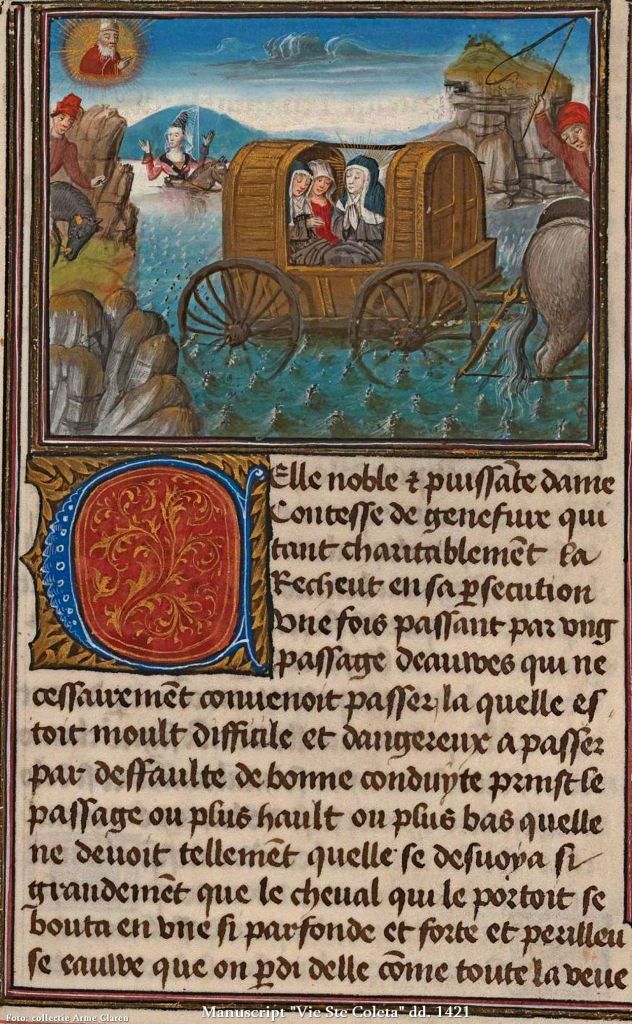 Celle noble ⁊ puissãte dame
Contesse de qui
tant charitablemẽt la
Recheut en sa ꝑsecution
Vne fois passant par vng
passage deauwes qui ne
cessairemẽt conuenoit passer la quelle es
toit moult difficile et dangereux a passer
par deffaulte de bonne conduyte prinst le
passage ou plus hault ou plus bas quelle
ne deuoit tellemẽt quelle se desuoya si
grandemẽt que le cheual qui le portoit se
bouta en vne si parfonde et forte et perilleu
se eauwe que on ꝑdi delle cõme toute la veue
Foto: collectie Arme Claren
Manuscript "Vie Ste Coleta" dd. 1421